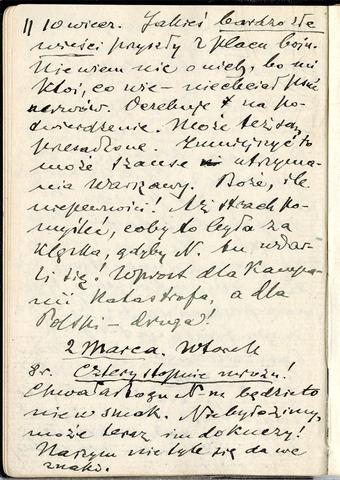 10 wiecz. Jakieś bardzo złe
wieści przyszły z placu boju.
Nie wiem nic o nich, bo mi
ktoś, co wie – nie chciał psuć
nerwów. Oczekuję na po-
twierdzenie. Może też są
przesadzone. Zmniejszyć to
może szanse utrzyma-
nia Warszawy. Boże, ile
niepewności! Aż strach po-
myśleć, coby to była za
klęska, gdyby N. tu wdar-
li się! Wprost dla Kampa-
nii katastrofa, a dla
Polski – druga!
2 Marca. Wtorek
8 r. Cztery stopnie mrozu!
Chwała Bogu N-m będzie to
nie w smak. Niebyło zimy,
może teraz im dokuczy!
Naszym nie tyle się da we
znaki.